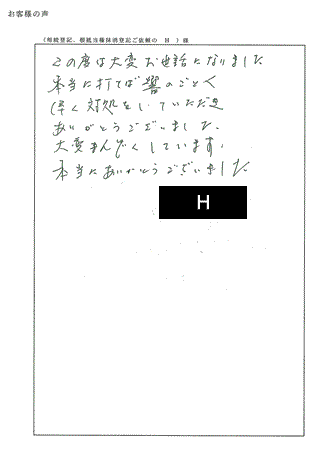 お客様の声
(相続登記、根抵当権抹消登記ご依頼の H )様
この度は大変お世話になりました
本当に打てば響のごとく
早く対処をしていただき
ありがとうございました。
大変まんぞくしています。
本当にありがとうございました
H